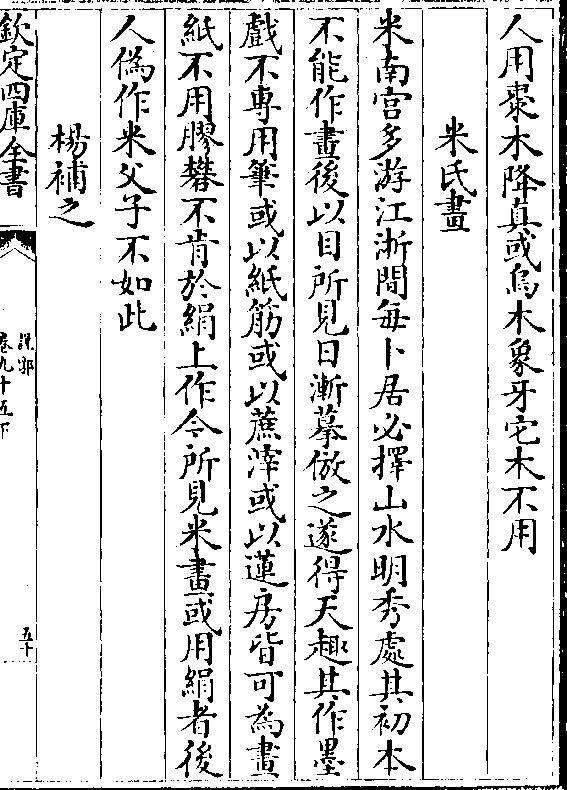 人用棗木降真或烏木象牙它木不用
米氏畫
米南宫多游江淅間每卜居必擇山水明秀處其初本
不能作畫後以目所見日漸摹倣之遂得天趣其作墨
戲不專用筆或以紙筋或以蔗滓或以蓮房皆可為畫
紙不用膠礬不肯於絹上作今所見米畫或用絹者後
人偽作米父子不如此
楊補之
欽定四庫全書
說郛
卷九十五下
五十